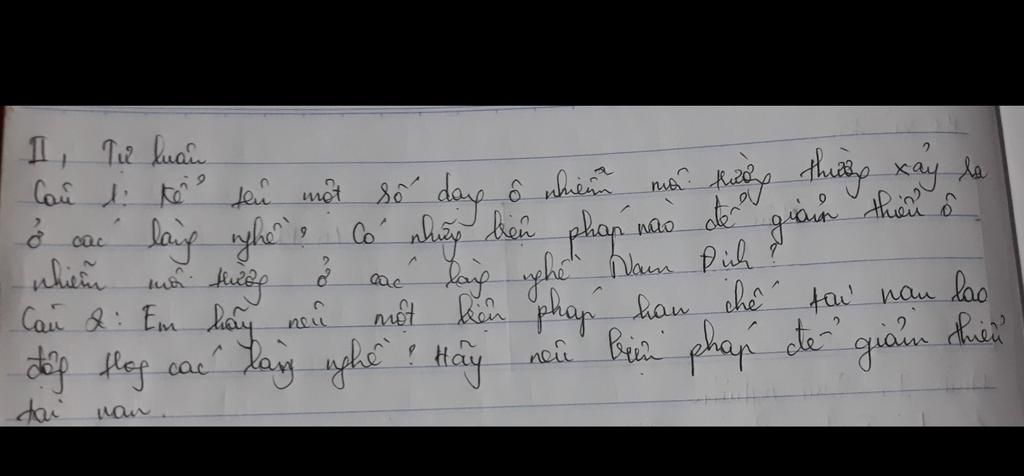 II, Tự luận
Câu 1: Kể tên một số dạng ô nhiễm môi trường thường xảy ra
ở các làng nghề? Có những biện pháp nào để giảm thiểu ô
nhiễm môi trường ở các làng nghề Nam Định?
Câu 2: Em hãy nêu một biện pháp hạn chế tai nạn lao
động trong các làng nghề? Hãy nêu biện pháp để giảm thiểu
tai nạn.